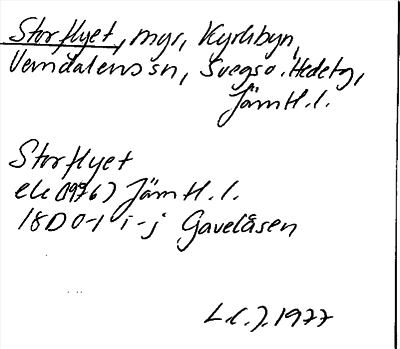 Storflyet, myr, Kyrkbyn,
Vemdalens sn, Svegs o. Hedetg,
Jämtl.l.
Storflyet
ek (1976) Jämtl.l.
18D 0-1 i-j Gavelåsen
L.C.J. 1977